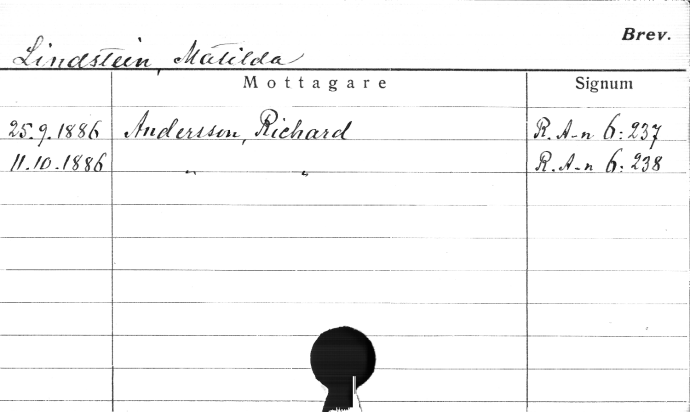 Brev.
Lindstein, Matilda
Mottagare Signum
25.9.1886 Andersson, Richard R. A-n 6: 237
11.10.1886 " " R. A-n 6: 238